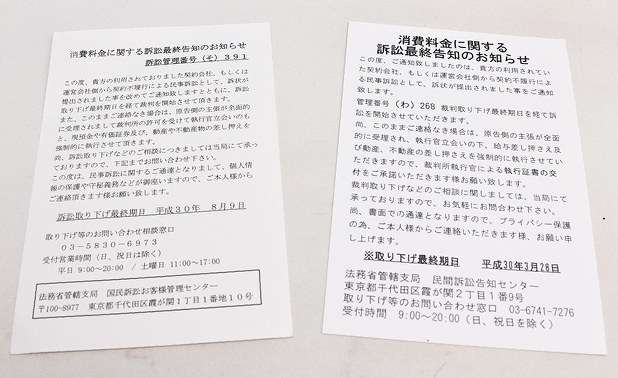 消費料金に関する訴訟最終告知のお知らせ
訴訟管理番号（そ）３９１
この度、貴方の利用されておりました契約会社、もしくは
運営会社側から契約不履行による民事訴訟として、訴状が
提出されました事を改めてご通知致しますとともに、訴訟
取り下げ最終期日を経て裁判を開始させて頂きます。
また、このままご連絡なき場合は、原告側の主張が全面的
に受理されまして裁判所の許可を受けて執行官立会いのも
と、現預金や有価証券及び、動産や不動産物の差し押えを
強制的に執行させて頂きます。
尚、訴訟取下げなどのご相談につきましては当局にて承っ
ておりますので、下記までお問い合わせ下さい。
この度は、民事訴訟に関するご通達となりまして、個人情
報の保護や守秘義務などが御座いますので、ご本人様から
ご連絡頂きます様お願い致します。
訴訟取り下げ最終期日　平成３０年　８月９日
取り下げ等のお問い合わせ相談窓口
０３－５８３０－６９７３
受付営業時間（日、祝日は除く）
平日 9:00～20:00 / 土曜日 11:00～17:00
法務省管轄支局　国民訴訟お客様管理センター
〒100-8977　東京都千代田区霞が関１丁目１番地１０号
消費料金に関する
訴訟最終告知のお知らせ
この度、ご通知致しましたのは、貴方の利用されてい
た契約会社、もしくは運営会社側から契約不履行によ
る民事訴訟として、訴状が提出されました事をご通知
致します。
管理番号（わ）268 裁判取り下げ最終期日を経て訴
訟を開始させていただきます。
尚、このままご連絡なき場合は、原告側の主張が全面
的に受理され、執行官立会いの下、給与差し押さえ及
び動産、不動産の差し押さえを強制的に執行させてい
ただきますので、裁判所執行官による執行証書の交
付をご承諾いただきます様お願い致します。
裁判取り下げなどのご相談に関しましては、当局にて
承っておりますので、お気軽にお問合わせ下さい。
尚、書面での通達となりますので、プライバシー保護
の為、ご本人様からご連絡いただきます様、お願い申
し上げます。
※取り下げ最終期日　平成30年3月26日
法務省管轄支局　民間訴訟告知センター
東京都千代田区霞が関２丁目１番9号
取り下げ等のお問い合わせ窓口　03-6741-7276
受付時間　9:00～20:00（日、祝日を除く）